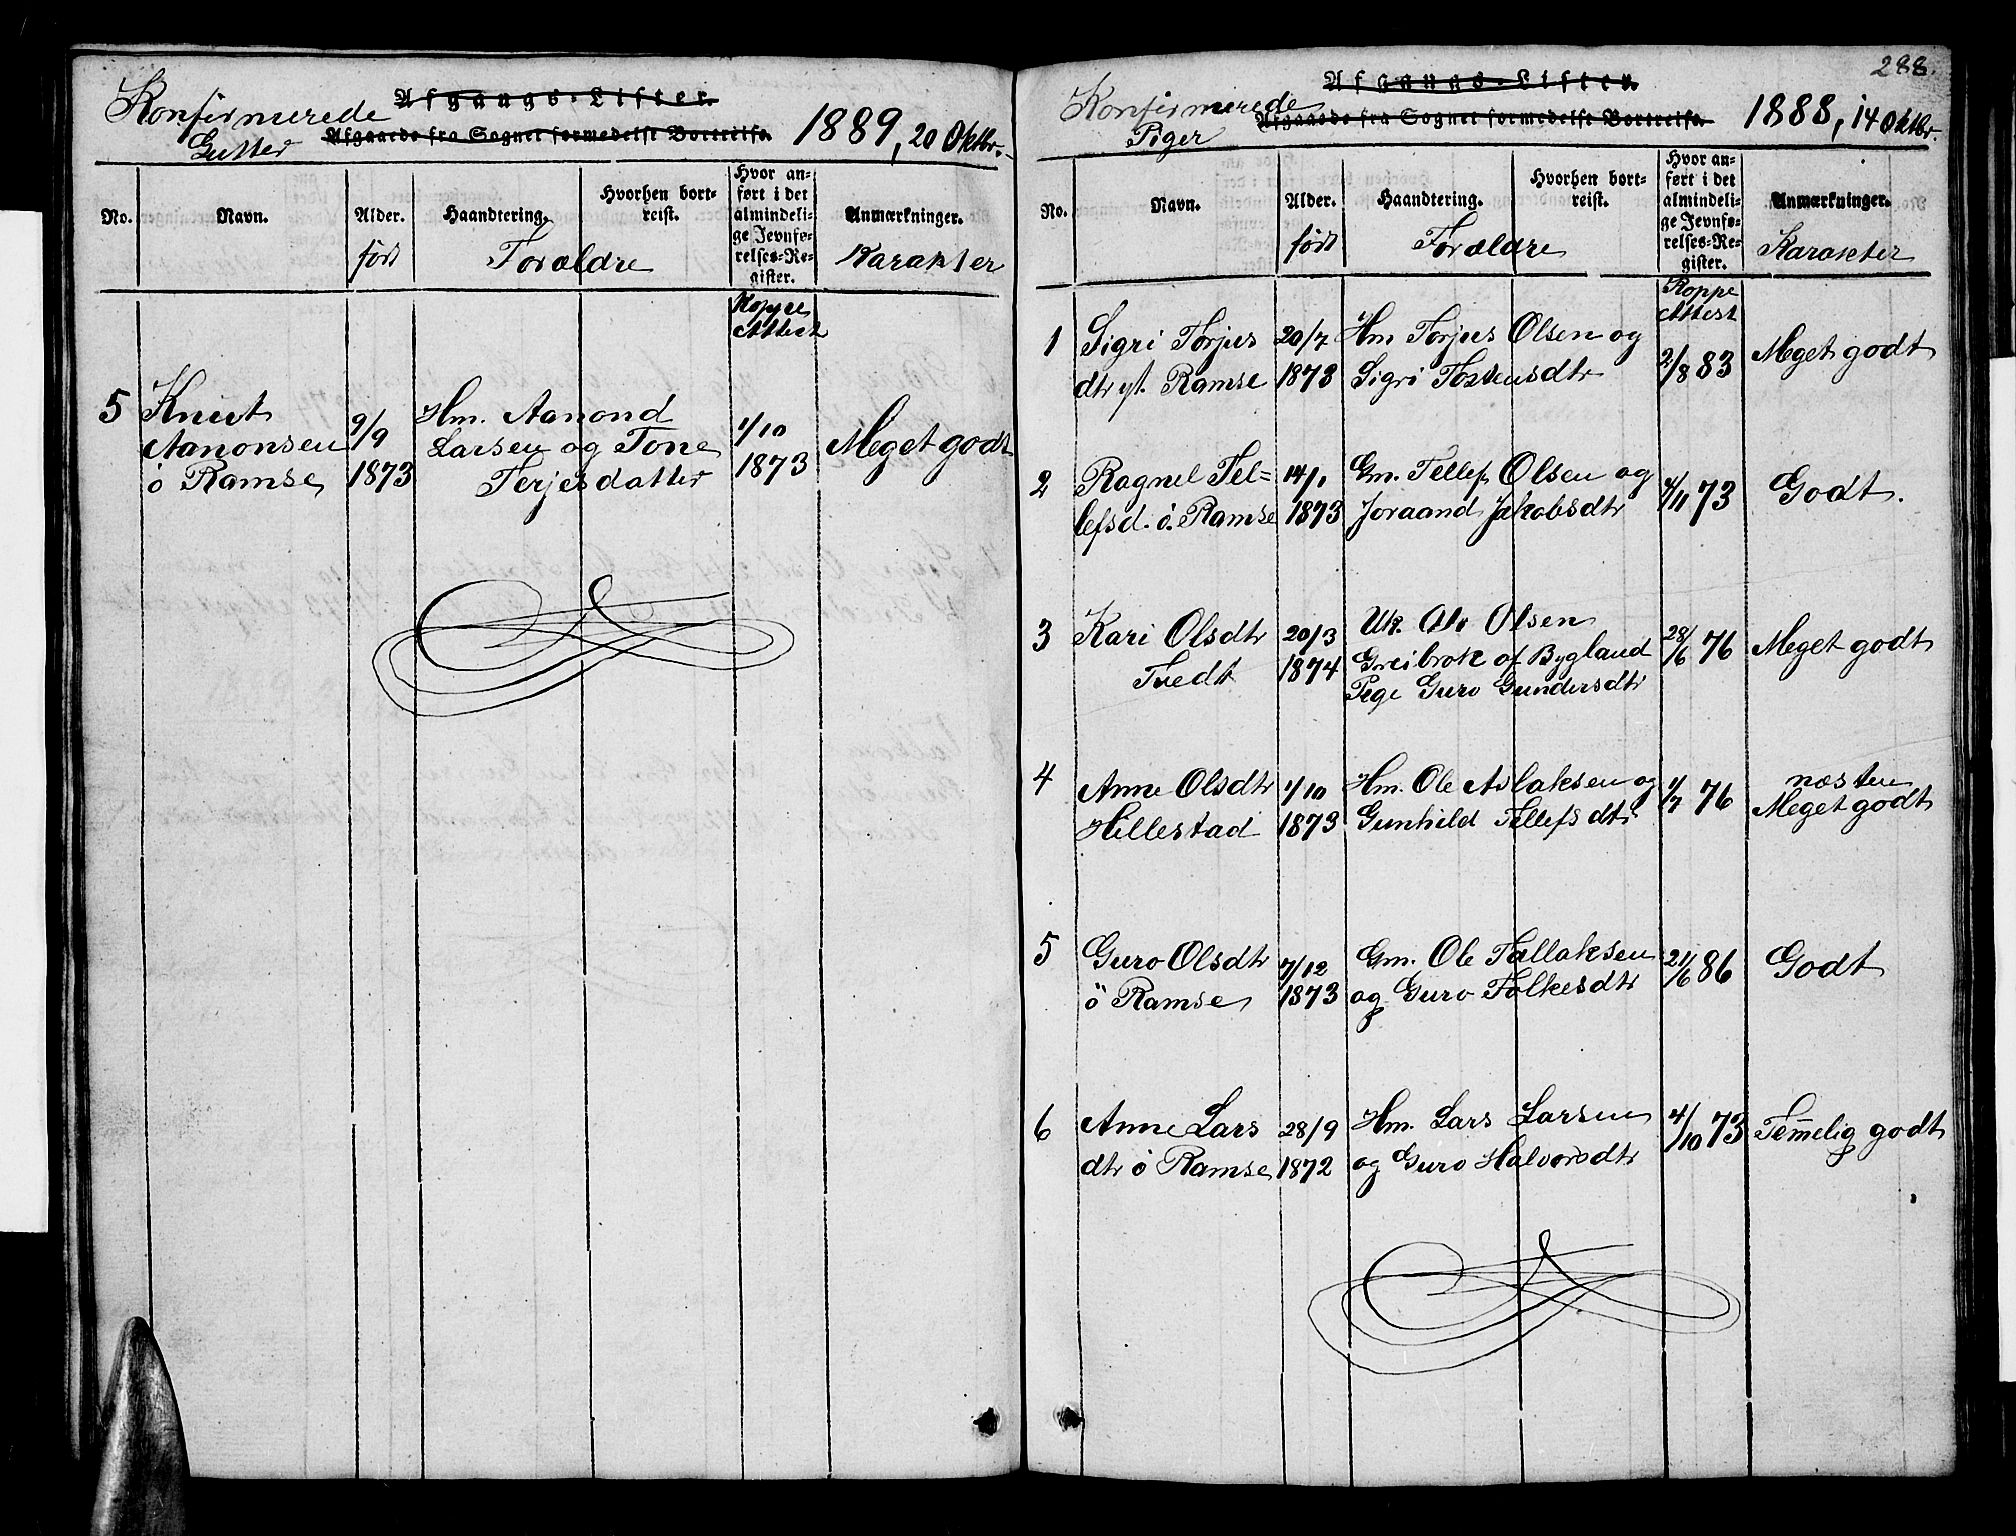 Konfirmerede
Gutter
Afgangs-Lister.
Afgaaede fra Sognet formedelst Bortreise.
1889, 20 Oktbr.
No.
Navn.
Alder.
født
Haandtering.
Hvorhen bort-
reist.
Forældre
Hvor an-
ført i det
almindeli-
ge Jevnfø-
relses-Re-
gister.
Anmærkninger.
Karakter
Koppe
Attest
5 Knut
Aanonsen
ö Ramse
9/9
1873
Hm. Aanond
Larsen og Tone
Terjesdatter
1/10
1873
Meget godt
288.
Konfirmerede
Piger
Afgangs-Lister.
Afgaaede fra Sognet formedelst Bortreise.
1888, 14 Oktbr.
No.
Navn.
Alder.
født
Haandtering.
Hvorhen bort-
reist.
Forældre
Hvor an-
ført i det
almindeli-
ge Jevnfø-
relses-Re-
gister.
Anmærkninger.
Karakter
Koppe
Attest
1 Sigri Torjus 20/7 Hm Torjus Olsen og 2/8 83 Meget godt
dtr yt. Ramse 1873 Sigri Tosvensdtr
2 Ragnel Tel- 14/1 Gm. Tellef Olsen og 4/11 73 Godt.
lefsd. ö. Ramse 1873 Joraand Jakobsdtr
3 Kari Olsdtr 20/3 Uk. Olv Olsen 28/6 76 Meget godt
Tvedt 1874 Greibrok af Bygland
Pige Guro Gundersdtr
4 Anne Olsdtr 1/10 Hm. Ole Aslaksen og 1/7 76 næsten
Hillestad 1873 Gunhild Tellefsdtr Meget godt
5 Guro Olsdtr 7/12 Gm. Ole Tallaksen 21/6 86 Godt
ö Ramse 1873 og Guro Folkesdtr
6 Anne Lars 28/9 Hm. Lars Larsen 4/10 73 Temmelig godt
dtr ö Ramse 1872 og Guro Halvorsdtr